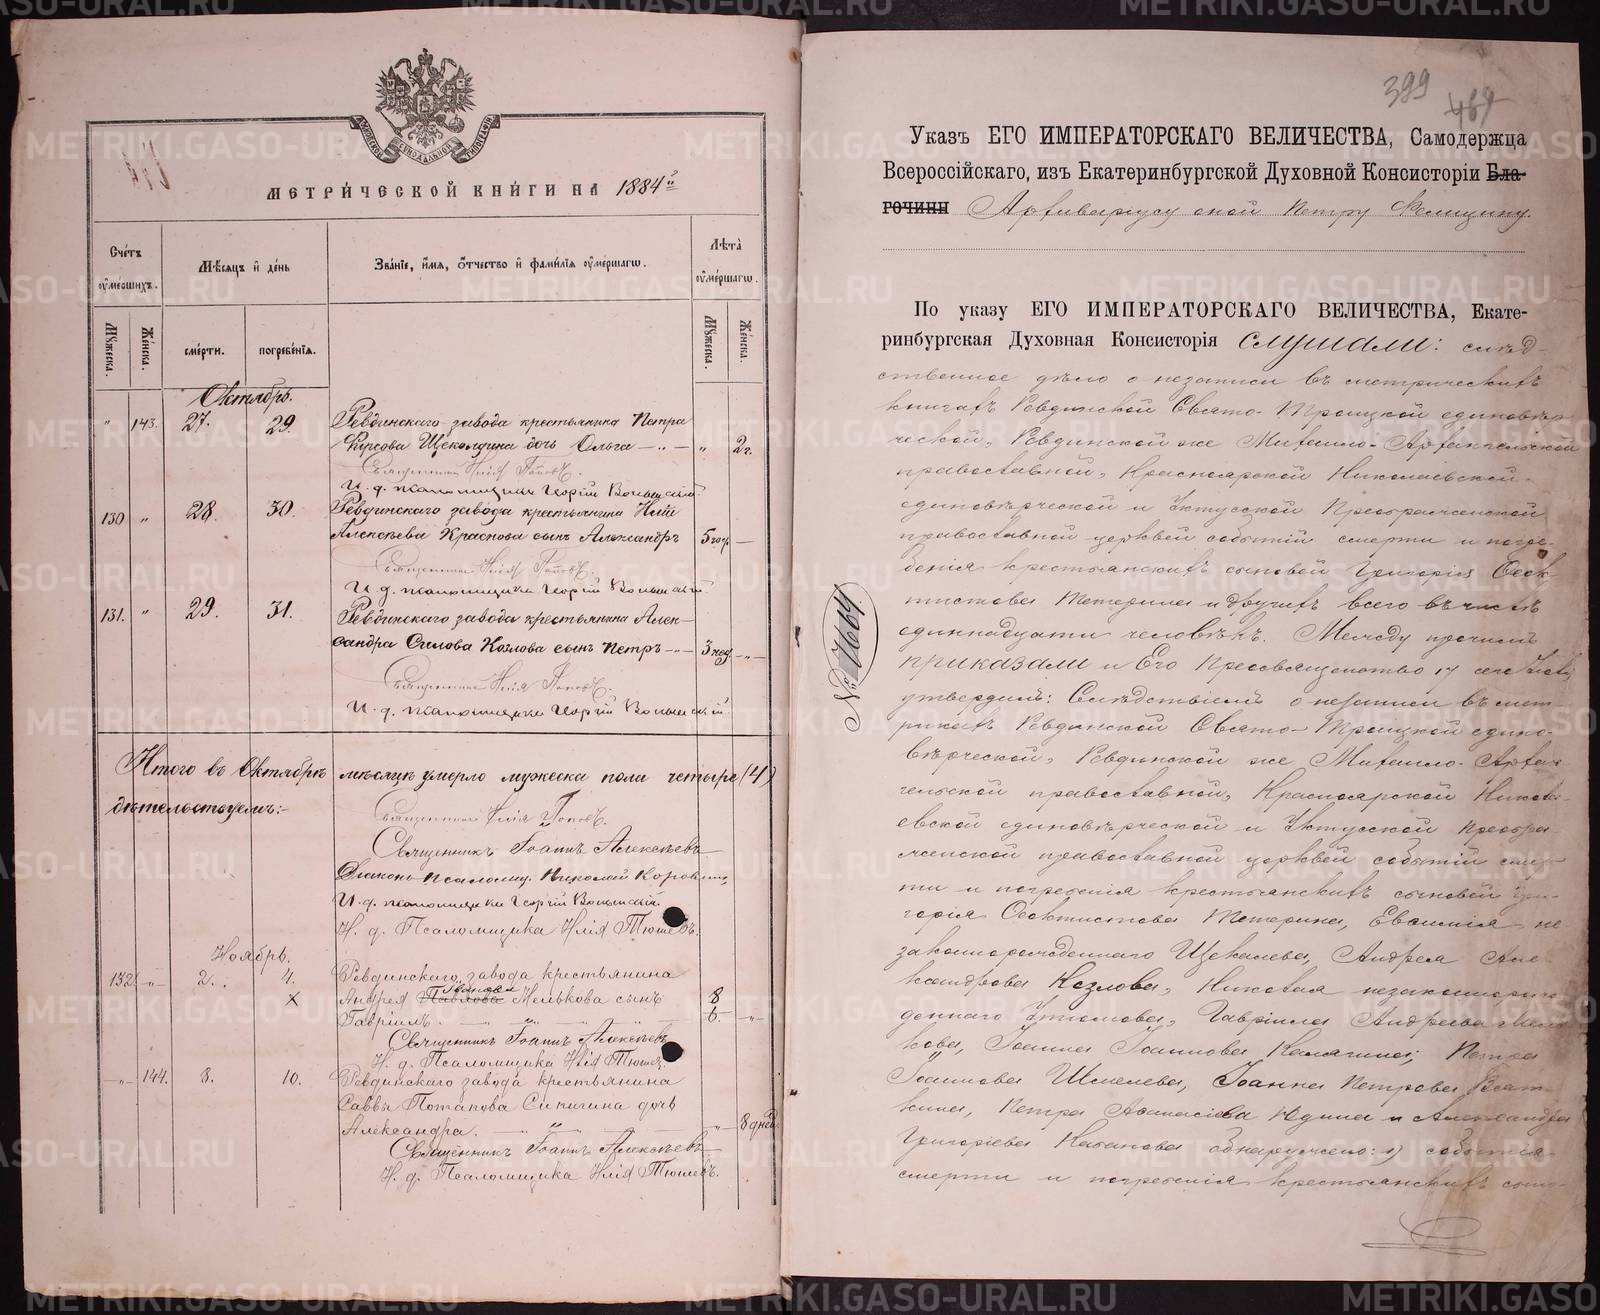 МОСКОВСКОЙ СѴНОДАЛЬНОЙ ТИПОГРАФІИ
МЕТРИ́ЧЕСКОЙ КНИ́ГИ НА 1884 г.
Счétъ ᲂу҆ме́ршихъ.
Мѣ́сяцъ и҆ де́нь
Зва́нїе, и҆́мя, ѻ҆́тчество и҆ фами́лїа ᲂу҆ме́ршагѡ.
Лѣ́та ᲂу҆ме́ршагѡ.
Мꙋ́жеска.
Же́нска.
сме́рти.
погребе́нїя.
Мꙋ́жеска.
Же́нска.
Октябрь.
" 143. 27. 29. Ревдинскаго завода крестьянина Петра
Фирсова Щеколдина дочь Ольга — " — " 2 г.
Священникъ Илія Поповъ.
И. д. псаломщика Георгій
130 " 28. 30. Ревдинскаго завода крестьянина Иліи
Алексѣева Краснова сынъ Александръ 5 год. —
Священникъ Илія Поповъ.
И. д. псаломщика Георгій
131. " 29. 31. Ревдинскаго завода крестьянина Алек-
сандра Силова Козлова сынъ Петръ — " — 3 нед. — " —
Священникъ Илія Поповъ.
И. д. псаломщика Георгій
Итого въ Октябрѣ мѣсяцѣ умерло мужеска пола четыре (4)
дѣтельствуемъ:-
Священникъ Илія Поповъ.
Священникъ Іоаннъ Алексѣевъ
Діаконъ-псаломщ. Николай Коровин
И. д. псаломщика Георгій
И. д. Псаломщика Илія Тюшевъ.
Ноябрь.
132. — " — 2. 4. Ревдинскаго завода крестьянина
х Андрея Павлова Иванова Мелькова сынъ 8
Гавріилъ. — " — " — " — б. — " —
Священникъ Іоаннъ Алексѣевъ
И. д. Псаломщика Илія Тюшев
— " — 144. 8. 10. Ревдинскаго завода крестьянина
Саввы Потапова дочь
Александра. — " — " — 8 дней
Священникъ Іоаннъ Алексѣевъ
И. д. Псаломщика Илія Тюшевъ.
399
469
Указъ ЕГО ИМПЕРАТОРСКАГО ВЕЛИЧЕСТВА, Самодержца
Всероссійскаго, изъ Екатеринбургской Духовной Консисторіи Бла-
гочинн Архиваріусу оной Петру
По указу ЕГО ИМПЕРАТОРСКАГО ВЕЛИЧЕСТВА, Екате-
ринбургская Духовная Консисторія слушали: слѣд-
ственное дѣло о незаписи въ метрическихъ
книгахъ Ревдинской Свято-Троицкой единовѣр-
ческой, Ревдинской же Михаило-Архангельской
православной, Красноярской Николаевской
единовѣрческой и Уктусской Преображенской
православной церквей событій смерти и погре-
бенія крестьянскихъ сыновей Григорія Ѳеок-
тистова Тетерина и другихъ всего въ числѣ
единнадцати человѣкъ. Между прочимъ
приказали и Его Преосвященство 17 сего
утвердилъ: Слѣдствіемъ о незаписи въ мет-
рикахъ Ревдинской Свято-Троицкой едино-
вѣрческой, Ревдинской же Михаило-Архан-
гельской православной, Красноярской Никола-
евской единовѣрческой и Уктусской Преобра-
женской православной церквей событій смер-
ти и погребенія крестьянскихъ сыновей Гри-
горія Ѳеоктистова Тетерина, Евѳимія не
законнорожденнаго Щекалева, Андрея Але
ксандрова Козлова, Николая незаконнорож
деннаго Утюмова, Гавріила Андреева Мель
кова, Іоанна Іоаннова Калягина, Петра
Іоаннова Шмелева, Іоанна Петрова Вят
кина, Петра Аѳанасіева Юдина и Александра
Григоріева Кабанова обнаружено: 1) событія
смерти и погребенія крестьянскихъ сыно-
№ 7664
METRIKI.GASO-URAL.RU